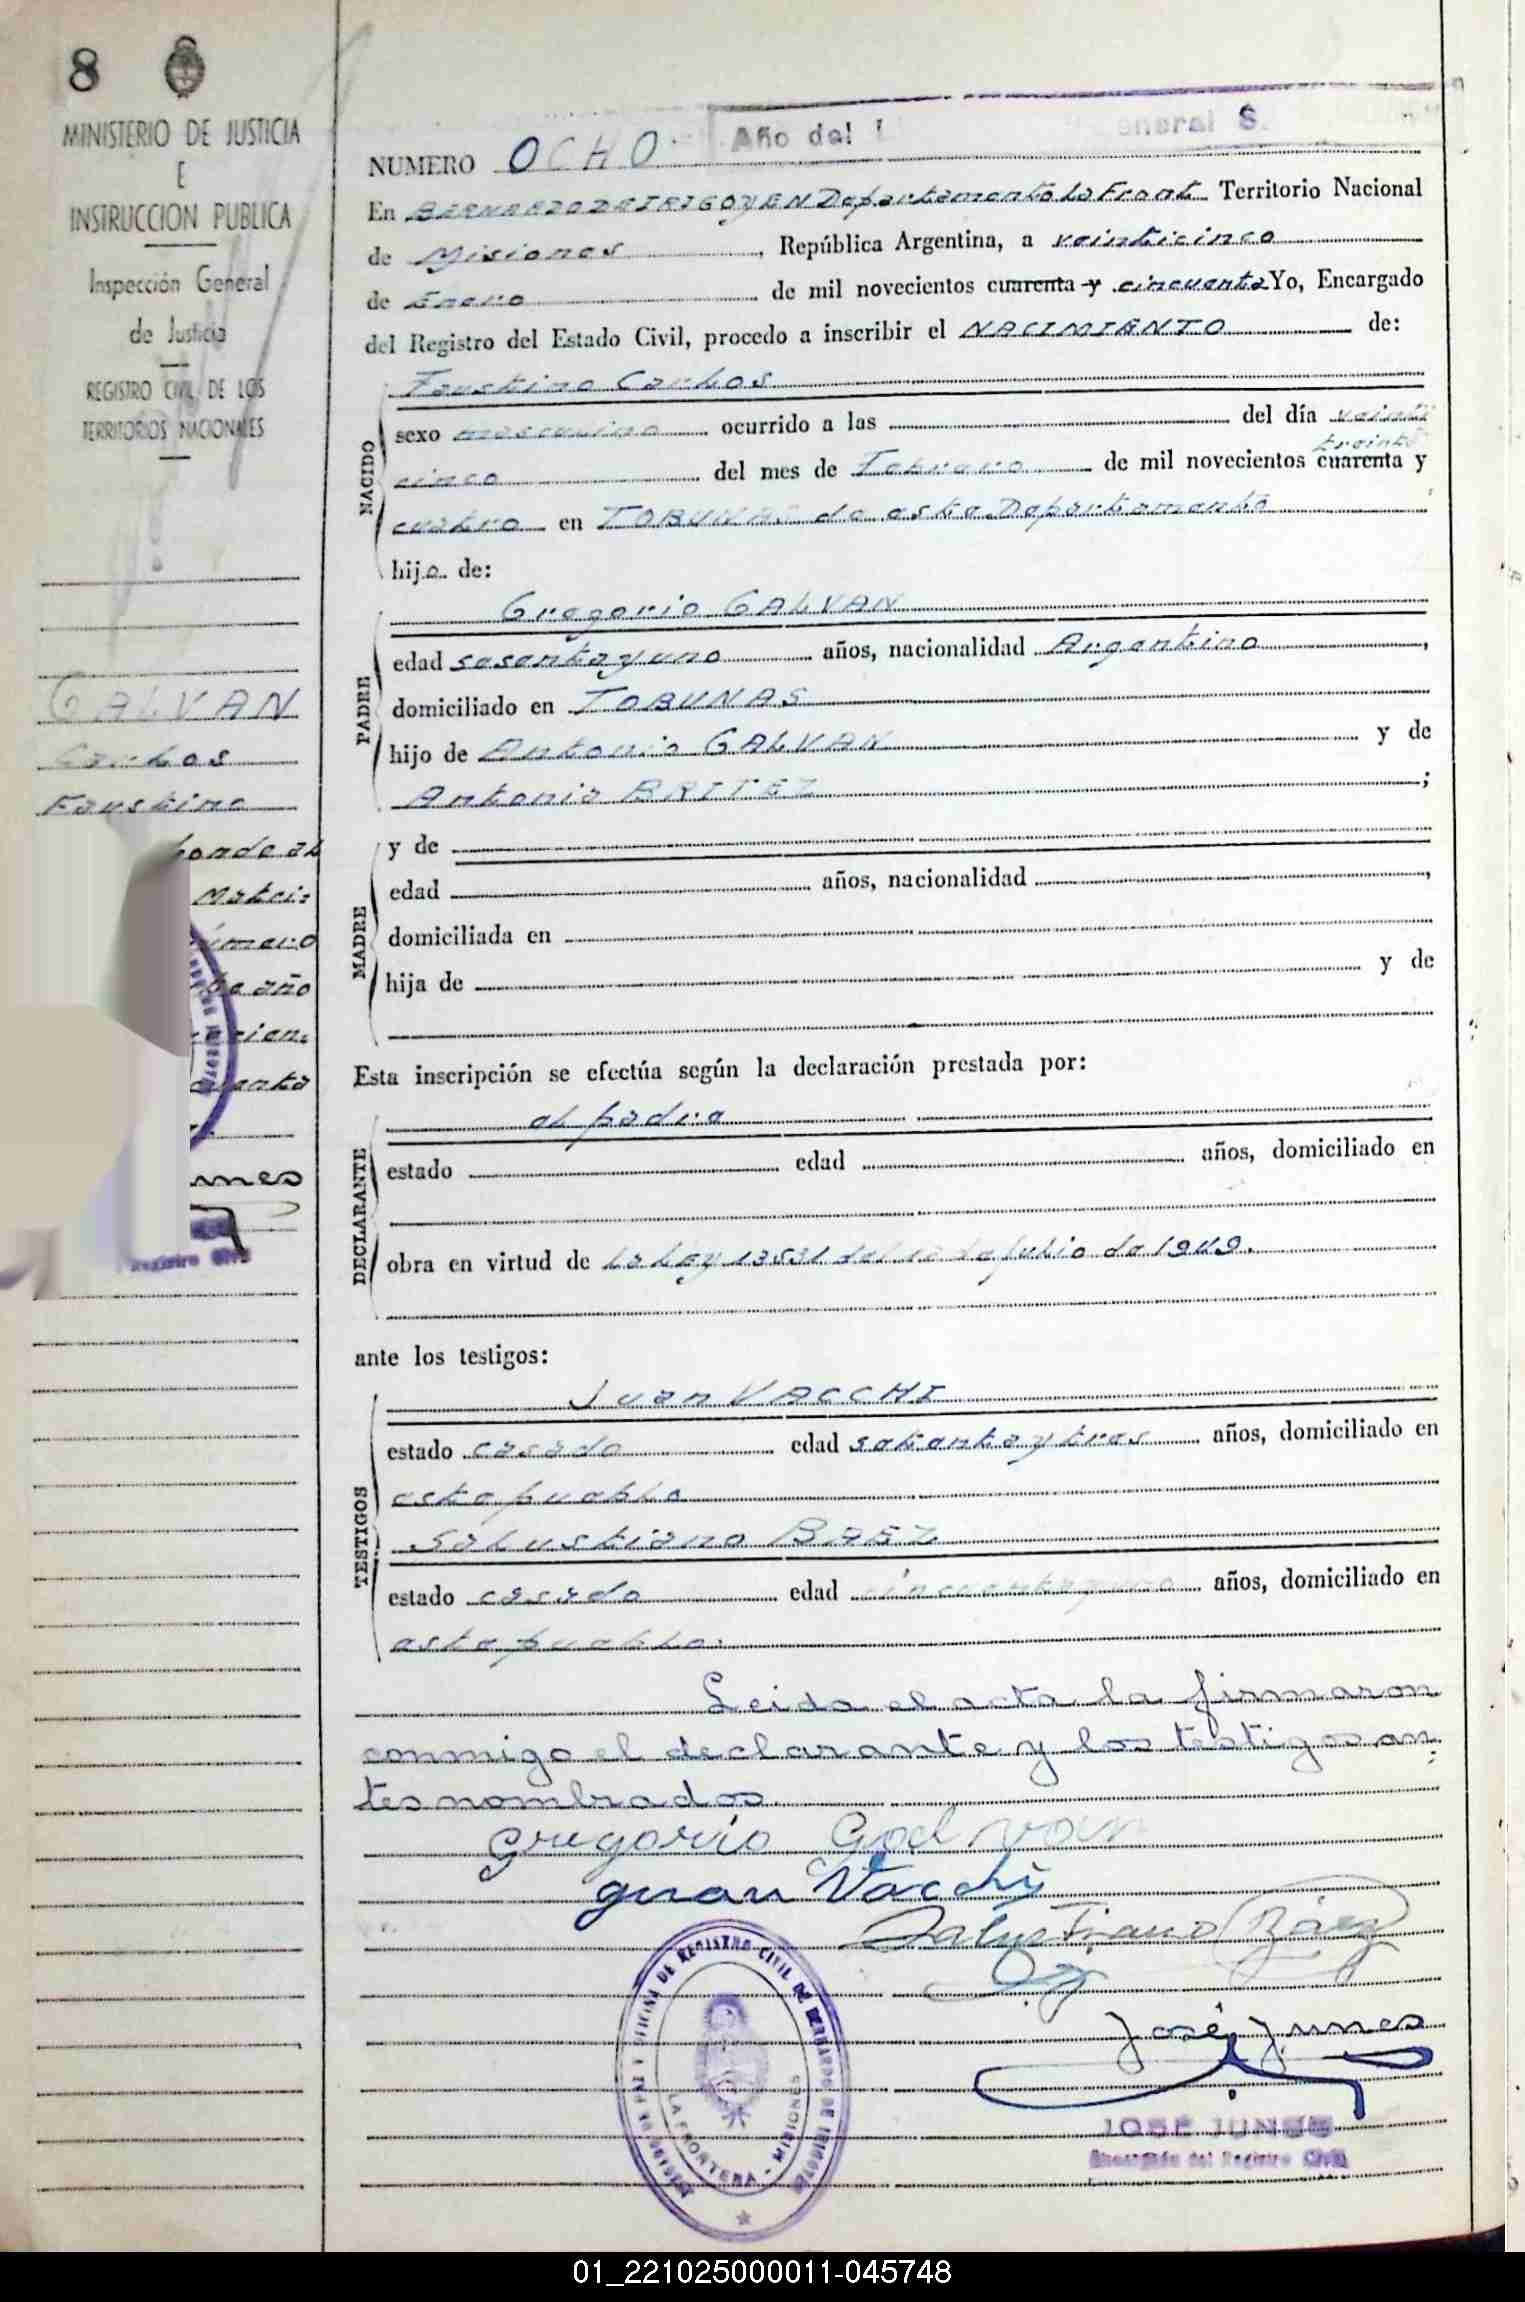 8
MINISTERIO DE JUSTICIA
E
INSTRUCCION PUBLICA
Inspección General
de Justicia
REGISTRO CIVIL DE LOS
TERRITORIOS NACIONALES
GALVAN
Carlos
Faustino
onde al
Matri:
úmero
año
cien:
enta
unes
Registro Civil
Año del eneral S.
NUMERO OCHO
En BERNARDO DE IRIGOYEN Departamento La Front. Territorio Nacional
de Misiones, República Argentina, a veinticinco
de Enero de mil novecientos cuarenta y cincuenta Yo, Encargado
del Registro del Estado Civil, procedo a inscribir el NACIMIENTO de:
NACIDO
Faustino Carlos
sexo masculino ocurrido a las del día veinti
treinta
cinco del mes de Febrero de mil novecientos cuarenta y
cuatro en TOBUNAS de este Departamento
hijo de:
PADRE
Gregorio GALVAN
edad sesenta y uno años, nacionalidad Argentino,
domiciliado en TOBUNAS
hijo de Antonio GALVAN y de
Antonia BRITEZ;
MADRE
y de
edad años, nacionalidad,
domiciliada en
hija de y de
Esta inscripción se efectúa según la declaración prestada por:
DECLARANTE
el padre
estado edad años, domiciliado en
obra en virtud de la Ley 13531 del de Julio de 1949.
ante los testigos:
TESTIGOS
Juan VACCHI
estado casado edad setenta y tres años, domiciliado en
este pueblo
Salustiano BAEZ
estado casado edad cincuenta y uno años, domiciliado en
este pueblo.
Leida el acta la firmaron
conmigo el declarante y los testigos an:
tes nombrados.
Gregorio Galvan
Juan Vacchi
Salustiano Báez
José Junes
JOSE JUNES
Encargado del Registro Civil
OFICINA DE REGISTRO CIVIL DE BERNARDO DE IRIGOYEN
LA FRONTERA - MISIONES
01_221025000011-045748